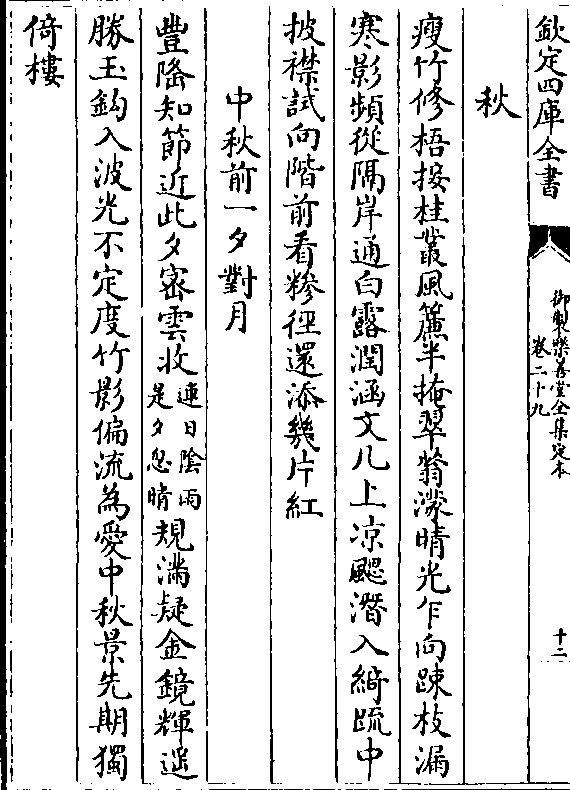 欽定四庫全書
御製樂善堂全集定本
卷二十九
十二
秋
瘦竹修梧接桂叢風簾半掩翠蓊濛晴光乍向踈枝漏
寒影頻從隔岸通白露潤涵文几上凉颸潛入綺䟽中
披襟試向階前看糝徑還添幾片紅
中秋前一夕對月
豐隆知節近此夕密雲收連日陰雨是夕忽晴規滿疑金鏡輝遥
勝玉鈎入波光不定度竹影偏流為愛中秋景先期獨
倚樓